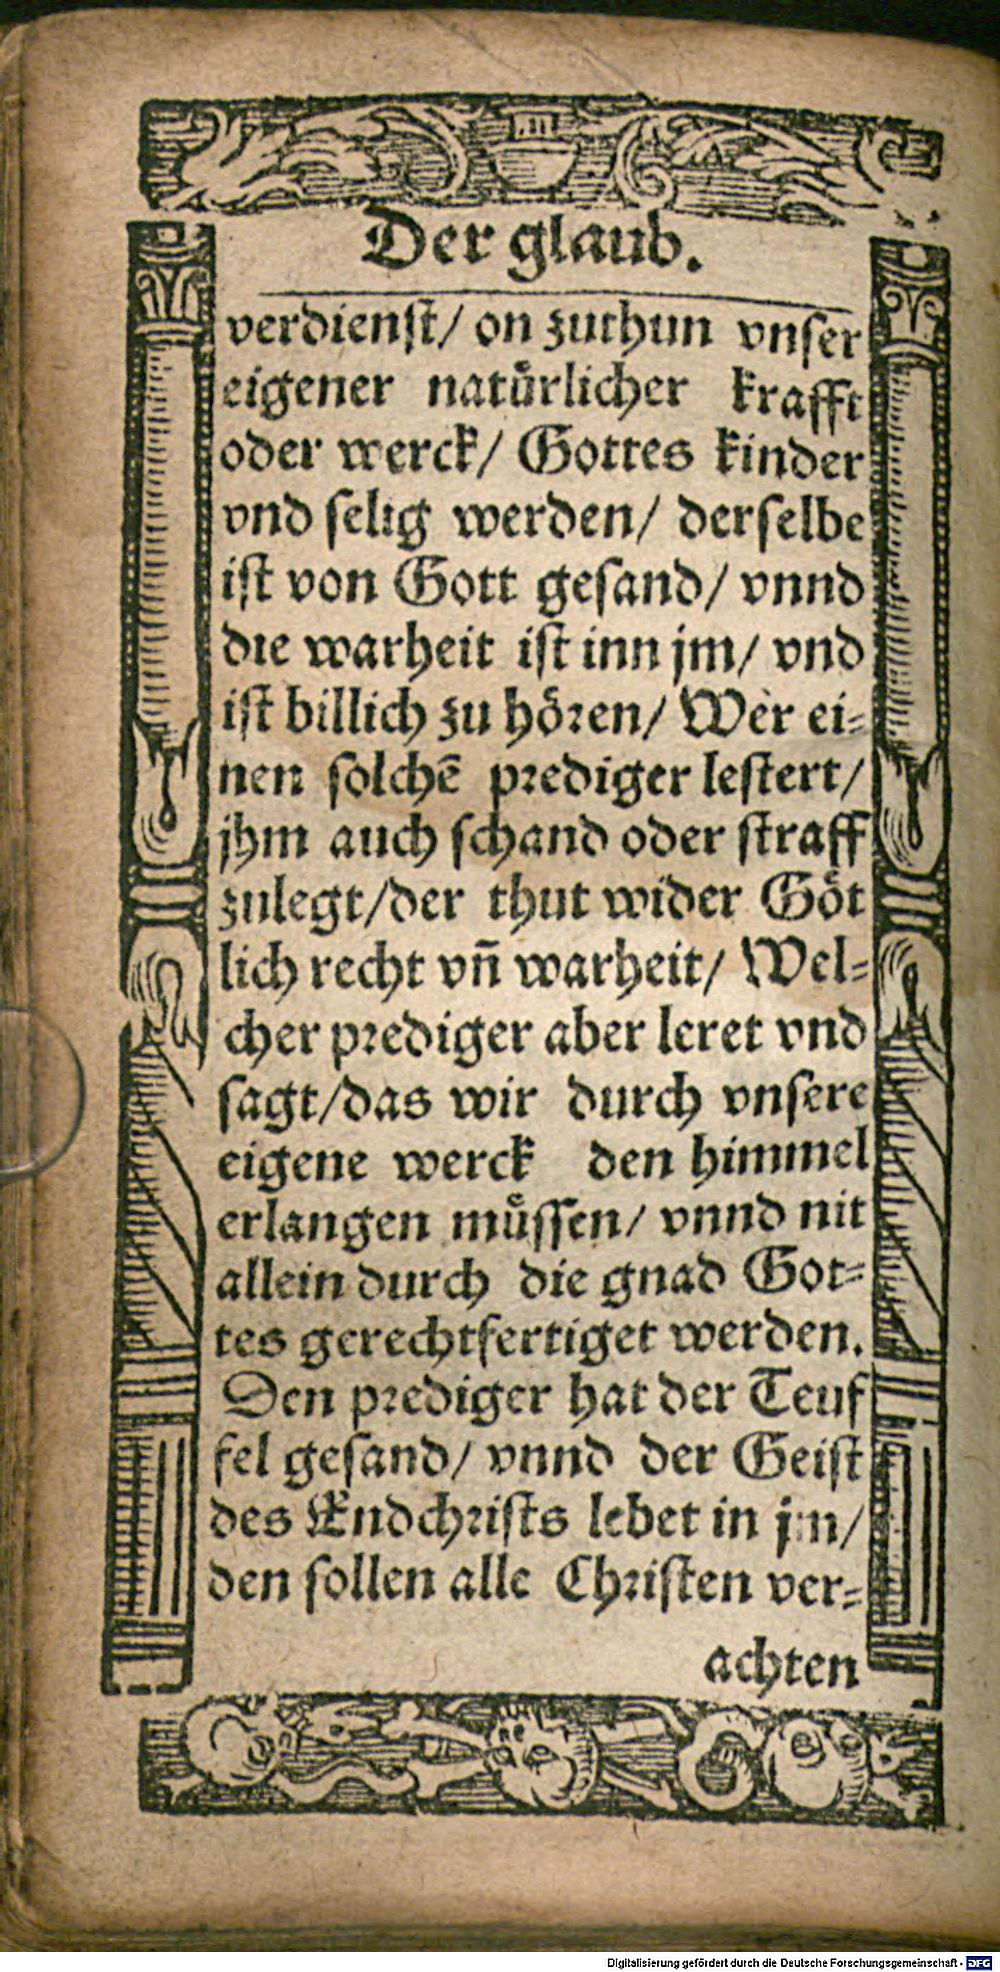 Der glaub.
verdienſt/ on zuthun vnſer
eigener natuͤrlicher krafft
oder werck/ Gottes kinder
vnd ſelig werden/ derſelbe
iſt von Gott geſand/ vnnd
die warheit iſt inn jm/ vnd
iſt billich zu hoͤꝛen/ Wer ei⸗
nen ſolchē pꝛediger leſtert/
jhm auch ſchand oder ſtraff
zulegt/der thut wider Goͤt
lich recht vn̄ warheit/ Wel⸗
cher pꝛediger aber leret vnd
ſagt/das wir durch vnſere
eigene werck den himmel
erlangen muͤſſen/ vnnd nit
allein durch die gnad Got⸗
tes gerechtfertiget werden.
Den pꝛediger hat der Teuf
fel geſand/ vnnd der Geiſt
des Endchꝛiſts lebet in jm/
den ſollen alle Chꝛiſten ver⸗
achten
Digitalisierung gefördert durch die Deutsche Forschungsgemeinschaft - DFG